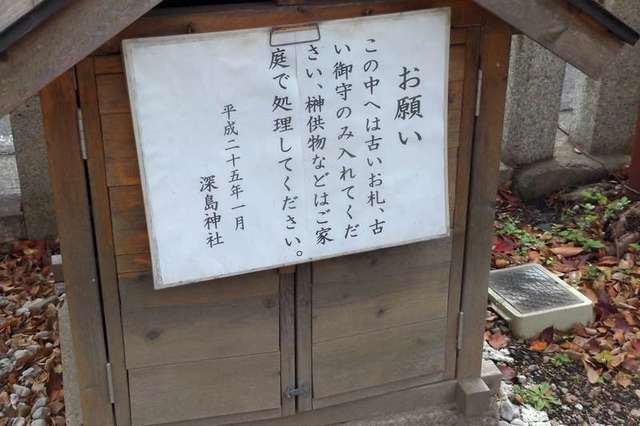 お願い
この中へは古いお札、古
い御守のみ入れてくだ
さい、榊供物などはご家
庭で処理してください。
平成二十五年一月
深島神社